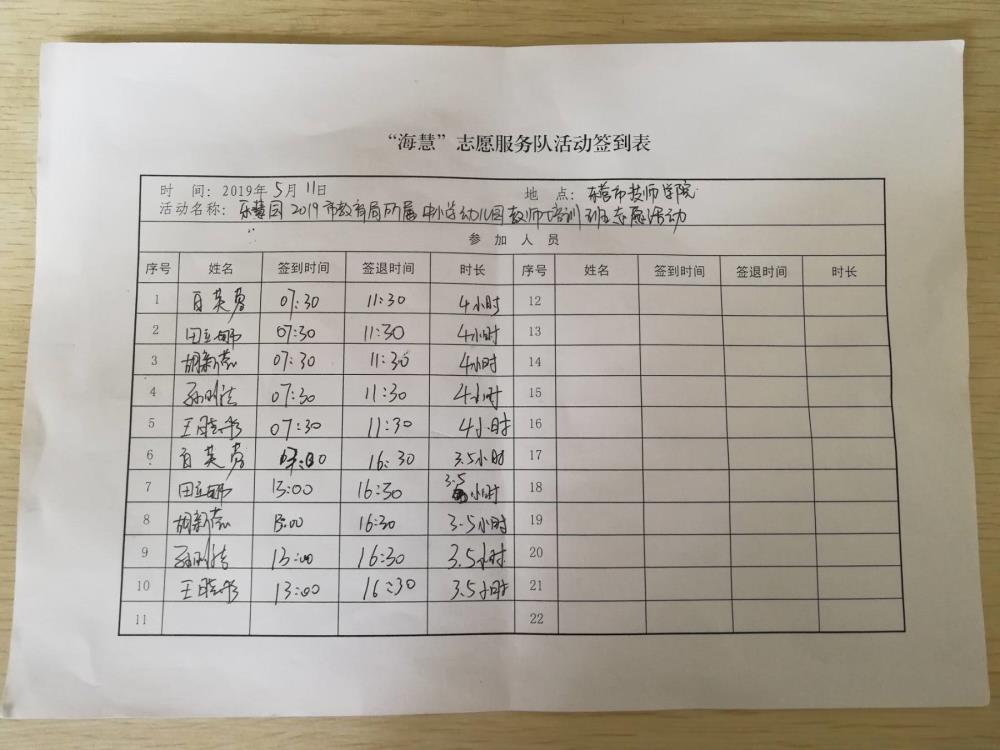 “海慧”志愿服务队活动签到表
时 间: 2019年 5月 11日 地 点: 东营市技师学院
活动名称: 乐慧园2019市教育局所属中小学幼儿园教师培训班志愿活动
参 加 人 员
序号 姓名 签到时间 签退时间 时长 序号 姓名 签到时间 签退时间 时长
1 07:30 11:30 4小时 12
2 07:30 11:30 4小时 13
3 胡新蕊 07:30 11:30 4小时 14
4 07:30 11:30 4小时 15
5 王晓彤 07:30 11:30 4小时 16
6 16:30 3.5小时 17
7 13:00 16:30 3.5小时 18
8 胡新蕊 13:00 16:30 3.5小时 19
9 13:00 16:30 3.5小时 20
10 王晓彤 13:00 16:30 3.5小时 21
11 22